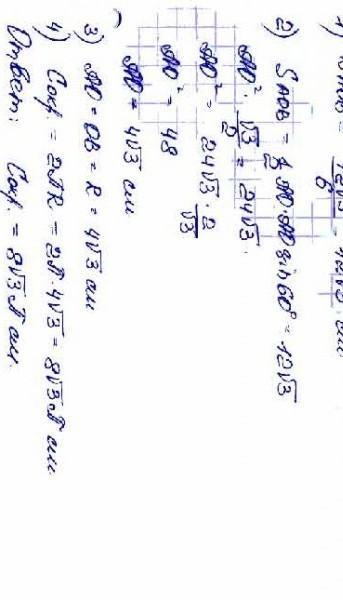 1) 72√3/6 = 12√3 см
2) S AOB = ½ AO·AO sin 60° = 12√3
AO² · √3/2 = 24√3.
AO² = 24√3 · 2/√3
AO² = 48
AO = 4√3 см
3) AO = OB = R = 4√3 см
4) Cокр. = 2πR = 2π·4√3 = 8√3π см
Ответ: Cокр. = 8√3π см.